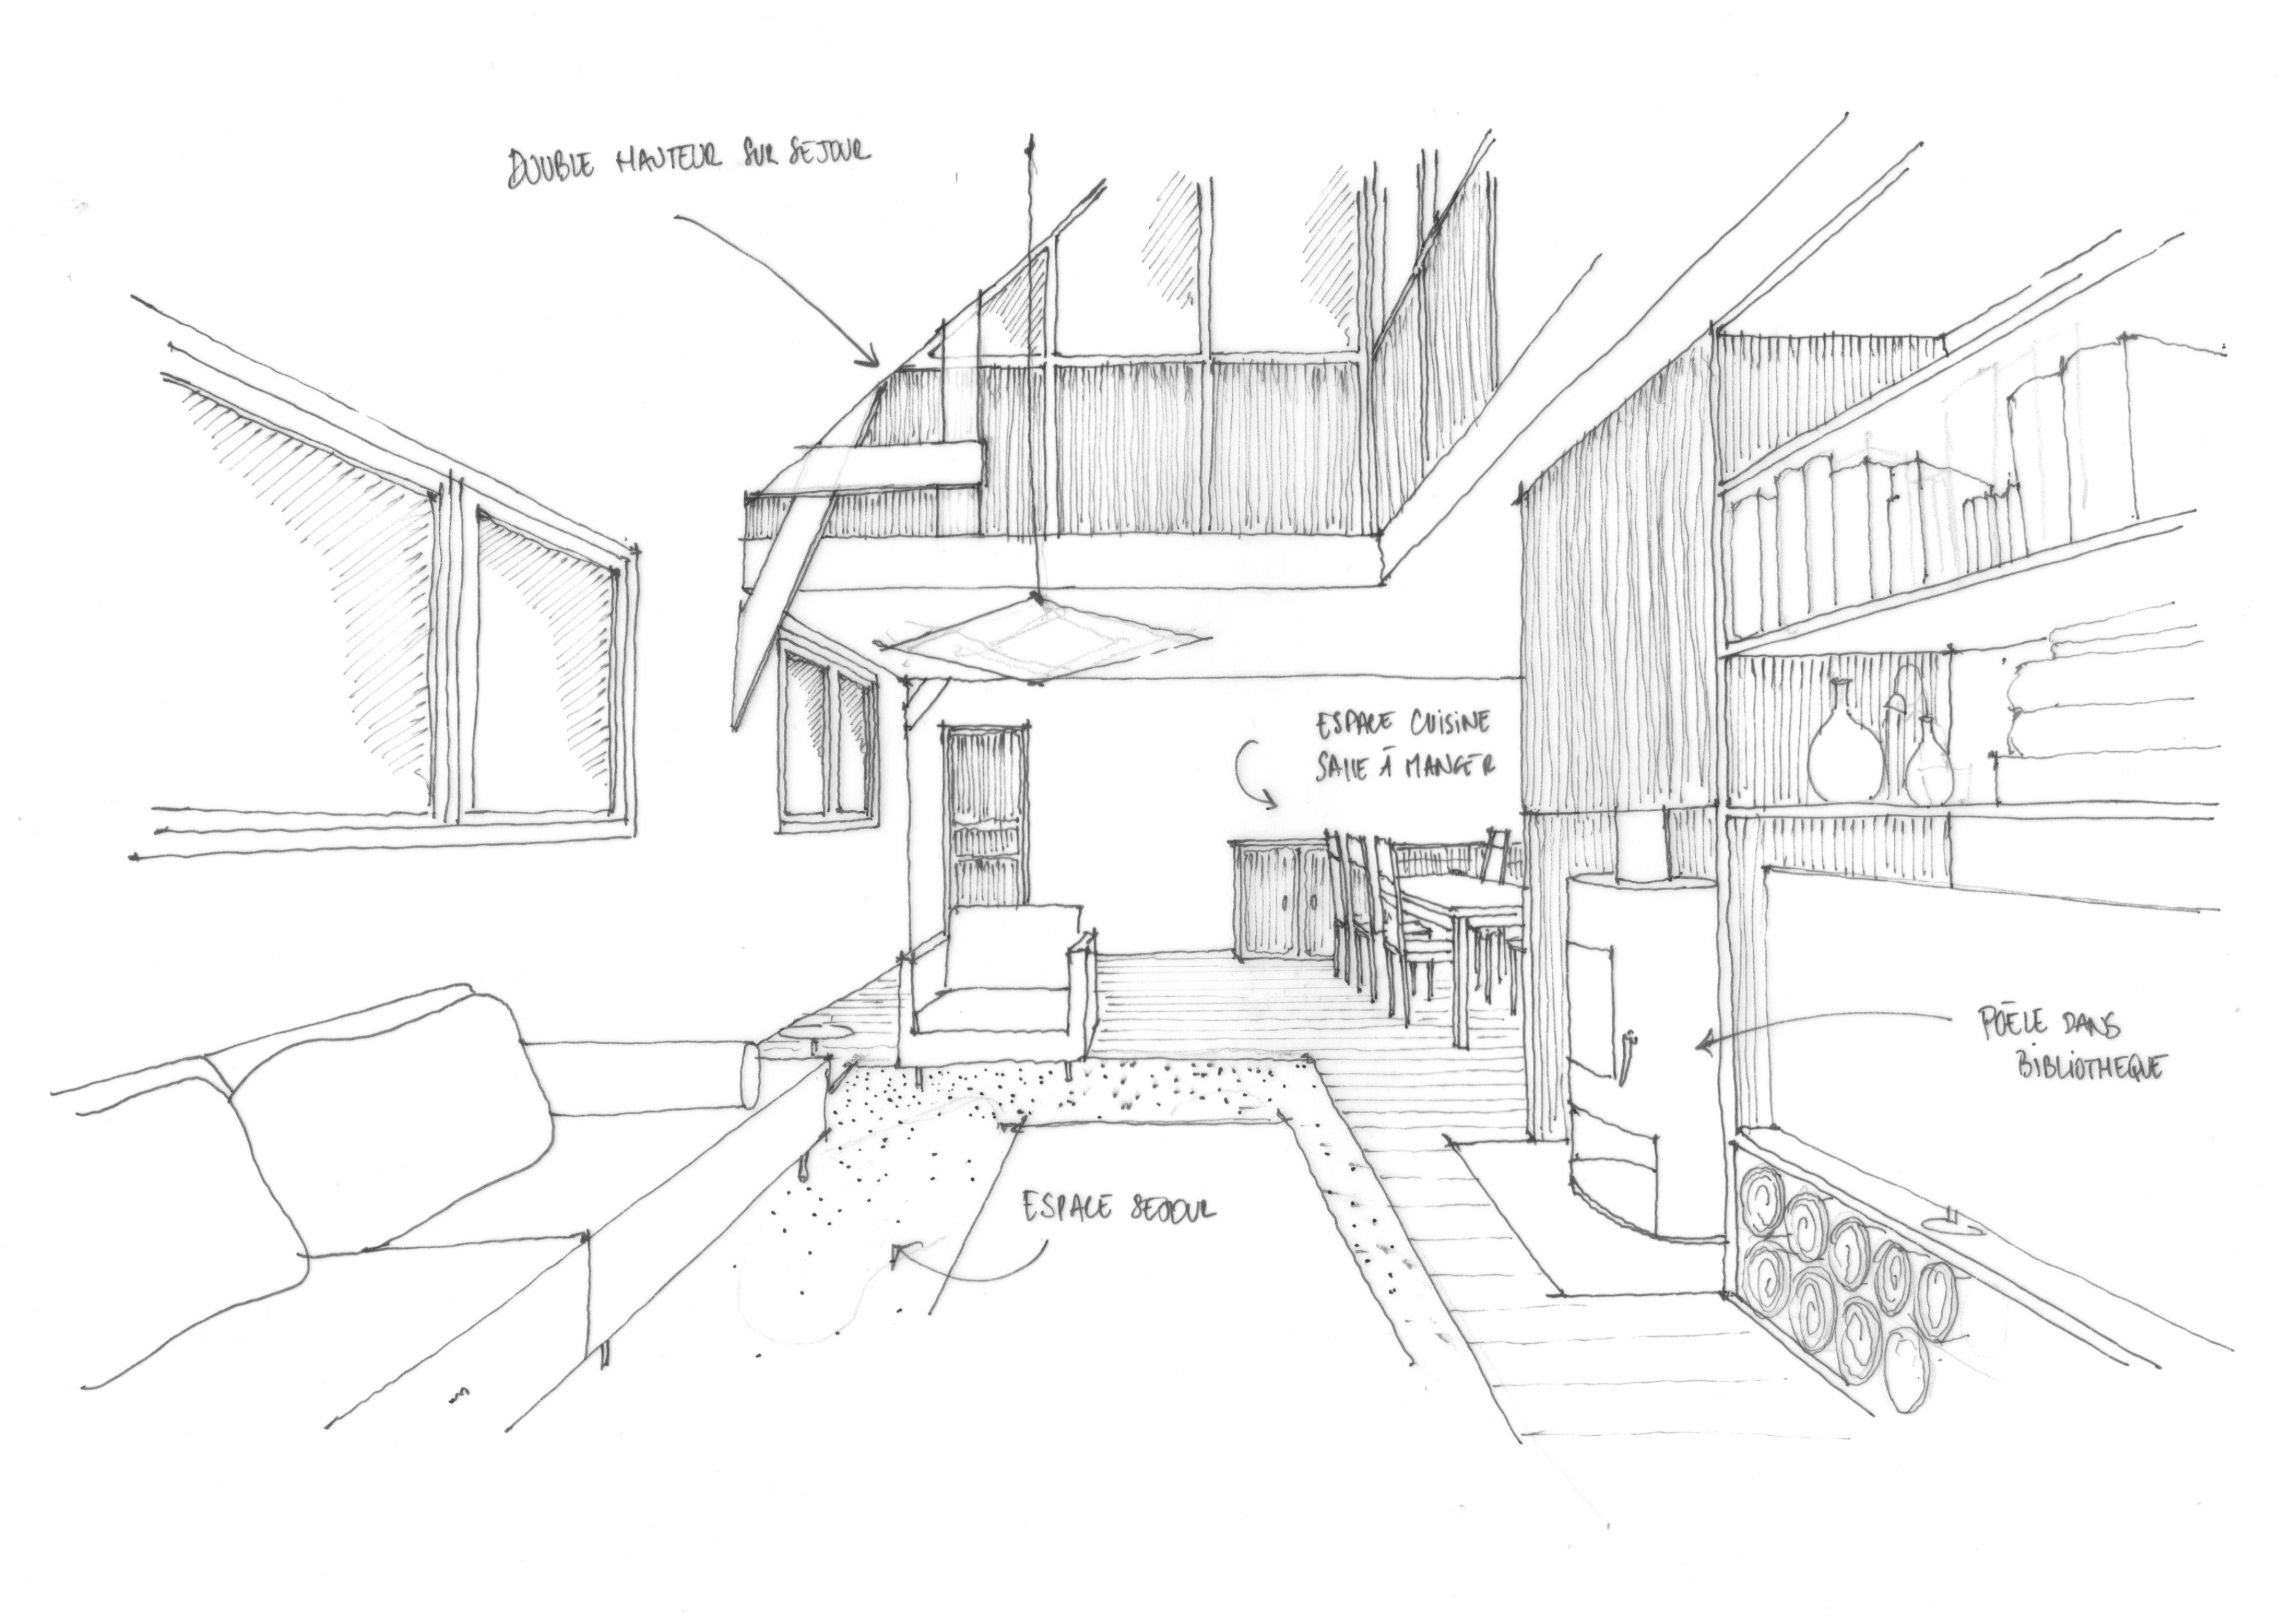 DOUBLE HAUTEUR SUR SEJOUR
ESPACE CUISINE
SALLE À MANGER
POÊLE DANS
BIBLIOTHEQUE
ESPACE SEJOUR